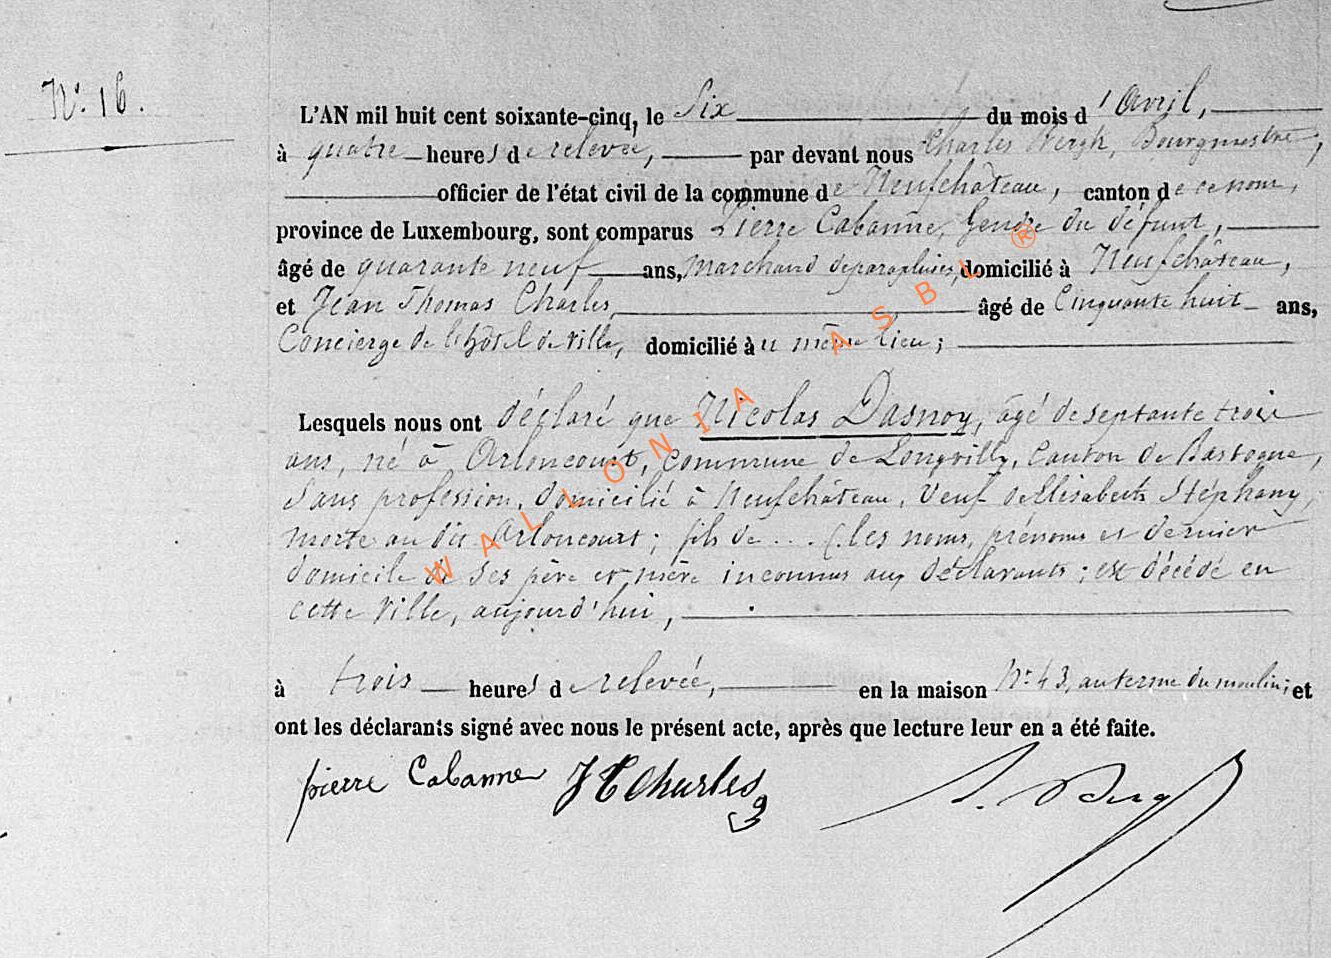 N° 16.
L'AN mil huit cent soixante-cinq, le Six du mois d'Avril,
à quatre heures de relevée, par devant nous Charles Bergh, Bourgmestre,
officier de l'état civil de la commune de Neufchâteau, canton de ce nom,
province de Luxembourg, sont comparus Pierre Cabanne, Gendre du défunt,
âgé de quarante neuf ans, Marchand de parapluies, domicilié à Neufchâteau,
et Jean Thomas Charles, âgé de Cinquante huit ans,
Concierge de l'hôtel de Ville, domicilié au même lieu;
Lesquels nous ont déclaré que Nicolas Dasnoy, âgé de septante trois
ans, né à Arloncourt, Commune de Longvilly, Canton de Bastogne,
Sans profession, domicilié à Neufchâteau, Veuf de Elisabeth Stéphany,
morte au dit Arloncourt; fils de ... (les noms, prénoms et dernier
domicile de ses père et mère inconnus aux déclarants; est décédé en
cette Ville, aujourd'hui,
à trois heures de relevée, en la maison N° 43, au terme du moulin; et
ont les déclarants signé avec nous le présent acte, après que lecture leur en a été faite.
pierre Cabanne JTCharles Berg
WALLONIA ASBL ®